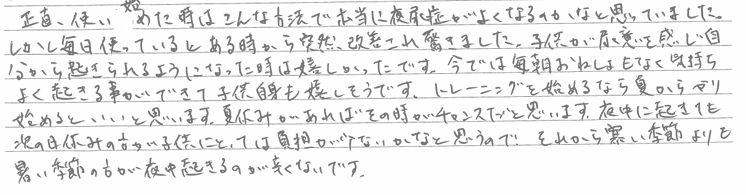 正直、使い始めた時はこんな方法で本当に夜尿症がよくなるのかなと思っていました。
しかし毎日使っているとある時から突然、改善され驚きました。子供が尿意を感じ自
分から起きられるようになった時は嬉しかったです。今では毎朝おねしょもなく気持ち
よく起きる事ができて子供自身も嬉しそうです。トレーニングを始めるなら夏からがり
始めるといいと思います。夏休みがあればその時がチャンスだと思います。夜中に起きても
次の日休みの方が子供にとっては負担が少ないかなと思うので。それから寒い季節よりも
暑い季節の方が夜中起きるのが辛くないです。